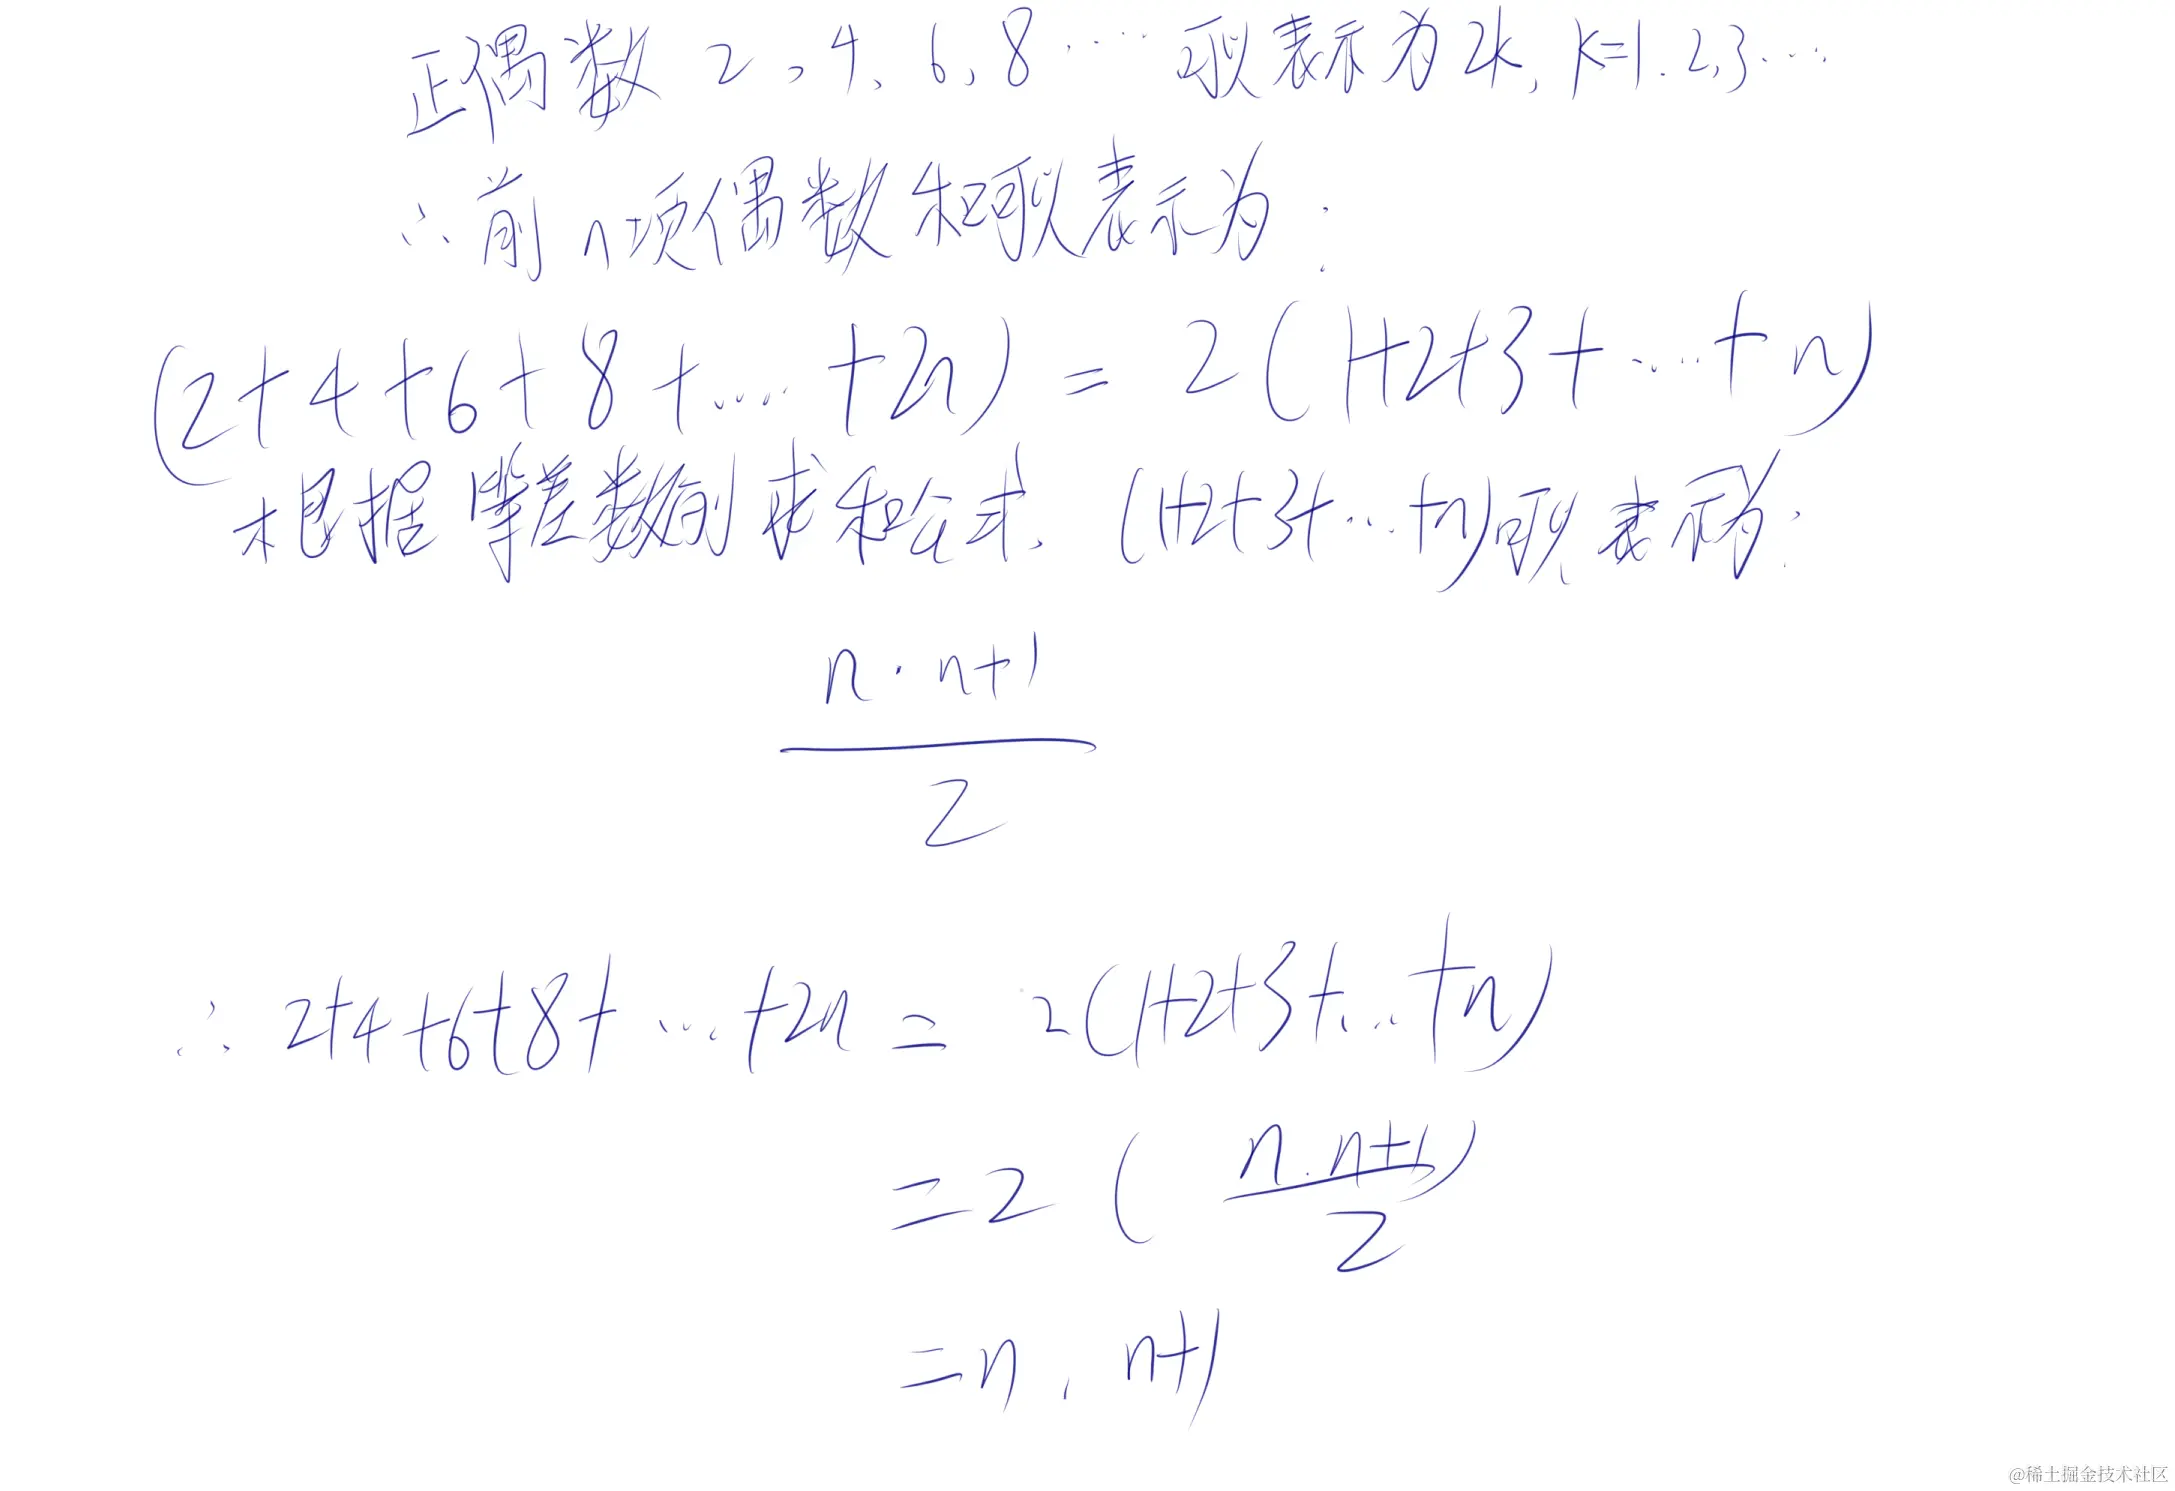 正偶数 2, 4, 6, 8 ····· 可以表示为 2k, k=1. 2, 3 ···
∴ 前 n 项偶数和可以表示为:
(2+4+6+8+ ····· +2n) = 2(1+2+3+ ····· +n)
根据等差数列求和公式, (1+2+3+ ··· +n)可以表示为:
n · n+1
2
∴ 2+4+6+8+ ····· +2n = 2(1+2+3+ ··· +n)
=2 ( n · n+1 )
2
=n . n+1
@稀土掘金技术社区